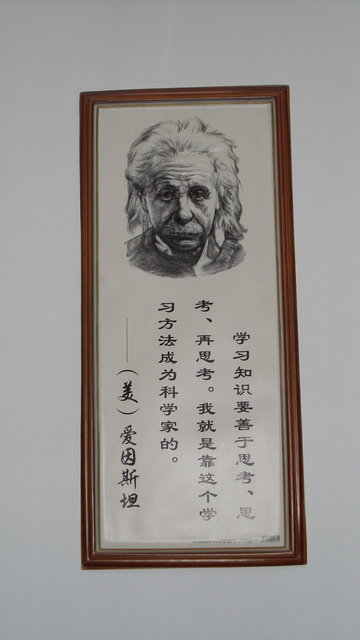 学习知识要善于思考、思
考、再思考。我就是靠这个学
习方法成为科学家的。
——(美)爱因斯坦